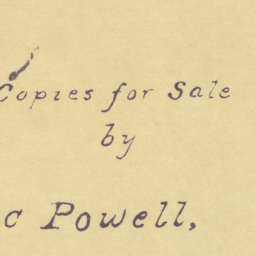 Copies for Sale
by
c Powell,